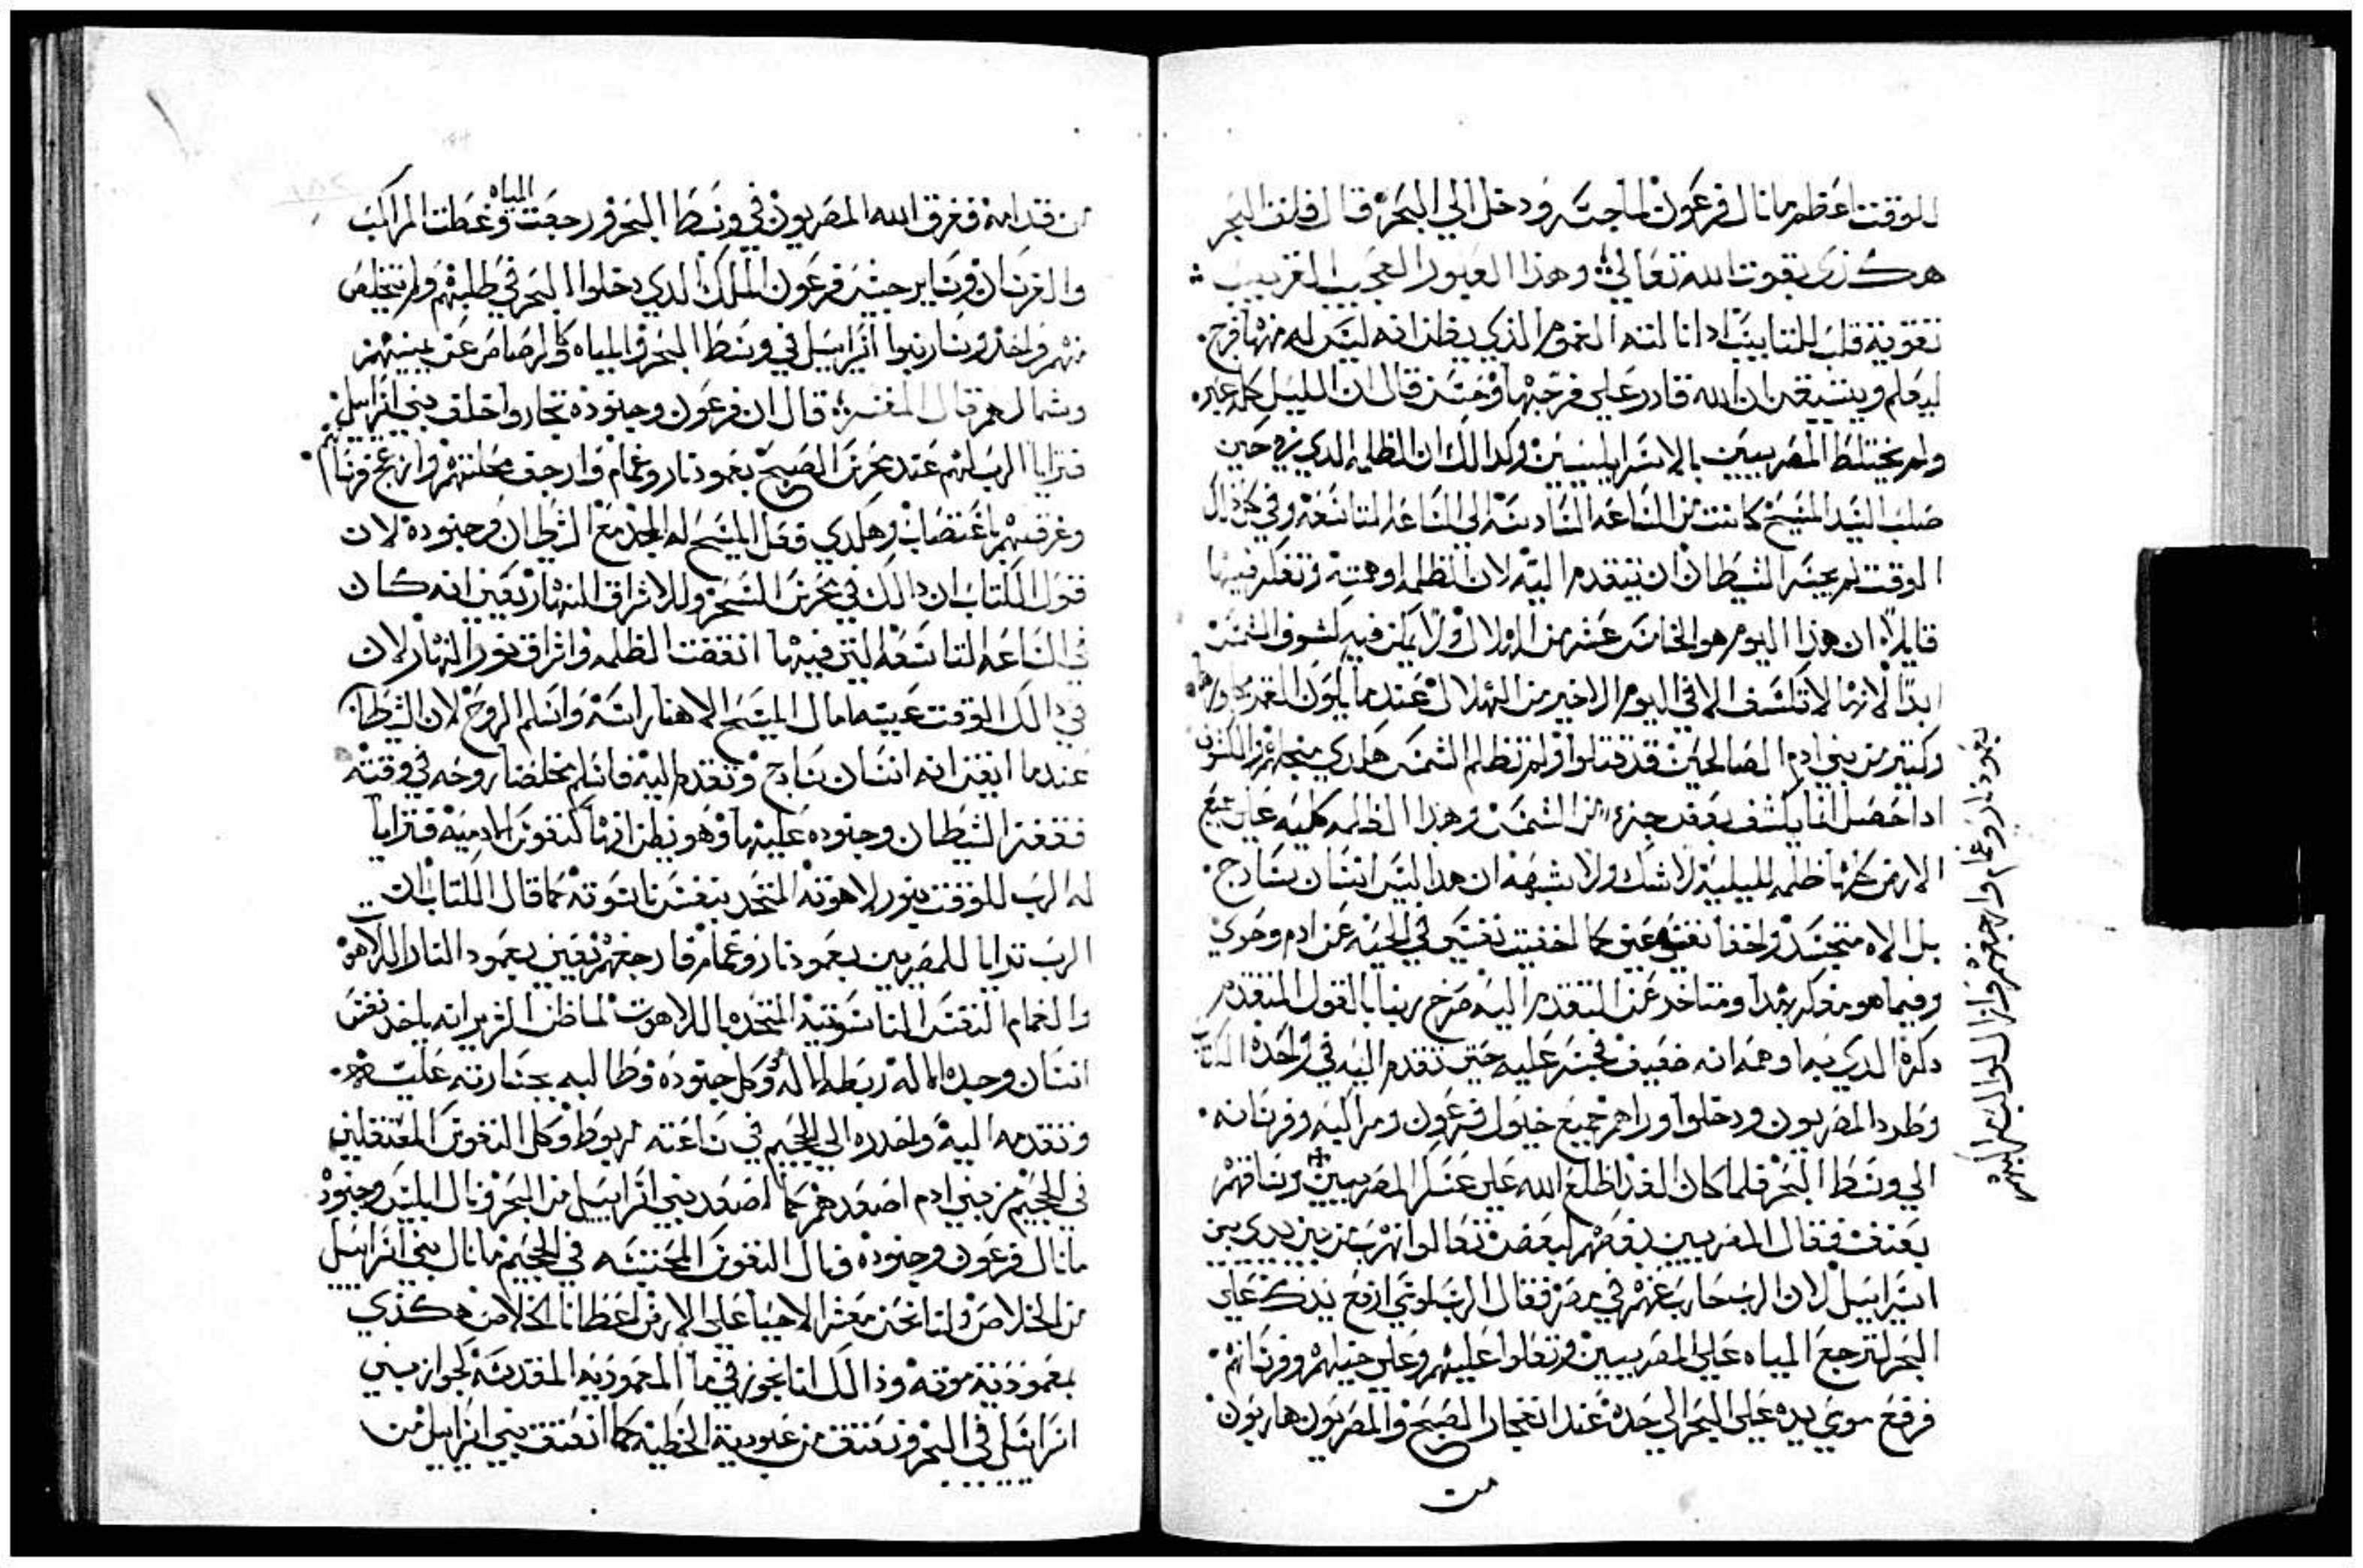 للوقت اعظم ما نال فرعون لما جسر ودخل الي البحر قال فلف البحر
هكذى بقوت الله تعالي وهذا العبور العجيب الغريب
تقوية قلب للتايبين ادا نالته الغموم الذي يظن انه ليس له منها فرج
ليعلم ويتيقن ان الله قادر علي فرجها وحسن قال ان الليل كله عبر
ولم يختلط المصريين بالاسراييليين وكدالك ان الظلمه الدي حين
صلب السيد المسيح كانت من الساعه السادسه الي الساعه التاسعه وفي كل دالك
الوقت لم يجسر الشيطان ان يتقدم اليه لان الظلمه اوهمته وتفكر فيها
قايلا ان هذا اليوم هو الخامس عشر من الهلال ولا يمكن فيه كسوف الشمس
ابدا لانها لا تكسف الا في اليوم الاخير من الهلال عند ما يكون القمر
وكتير من بني ادم الصالحين قد قتلوا ولم تظلم الشمس هكدي من اجلهم الكسوف
ادا حصل انما يكسف بعض جزء من الشمس وهذا الظلمه كليه علي جميع
الارض كلها ظلمه ليليه لا شك ولا شبهه ان هدا ليس انسان سادج
بل الاه متجسد واخفا نفسه عني كما اخفيت نفسي في الحيه عن ادم وحوي
وفيما هو مفكر بهدا ومتاخر عن التقدم اليه صرخ ربنا بالقول المتقدم
دكره الدي بما وهمه انه ضعيف فجسر عليه حتي تقدم اليه في واحده الكتاب
وطرد المصريون ودخلوا وراهم جميع خيول فرعون ومراكبه وفرسانه
الي وسط البحر فلما كان الغد اطلع الله علي عسكر المصريين وساقهم
بعنف فقال المصريين بعضهم لبعض تعالوا نهرب من بين يدي بني
اسراييل لان الرب حارب عنهم في مصر فقال الرب لموسي ارفع يدك علي
البحر لترجع المياه علي المصريين وتعلوا عليهم وعلي خيلهم وفرسانهم
فرفع موسي يده علي البحر الي حده عند انفجار الصبح والمصريون هاربون
من
بعمود نار وغمام وارجفهم وازال لوالب عجلاتهم
من قدامه فغرق الله المصريون في وسط البحر ورجعت المياه وغطت المراكب
والفرسان وساير جيش فرعون الملك الدي دخلوا البحر في طلبهم ولم يتخلص
منهم واحد وساروا بنوا اسراييل في وسط البحر والمياه كالرصاص عن يمينهم
وشمالهم قال المفسر قال ان فرعون وجنوده تجاروا خلف بني اسراييل
فترايا الرب لهم عند محرس الصبح بعمود نار وغمام وارجف محلتهم وازعج فرسانهم
وغرقهم باغتصاب وهكدي فعل المسيح له المجد مع الشيطان وجنوده لان
قول الكتاب ان دالك في محرس السحر وللاشراق النهار يعني انه كان
في الساعه التاسعه التي فيها انقضت الظلمه واشراق نور النهار لان
في دالك الوقت عينه امال المسيح الاهنا راسه واسلم الروح لان الشيطان
عندما ايقن انه انسان سادج وتقدم اليه فاسلم مخلصنا روحه في وقته
فقفز الشيطان وجنوده عليها وهو يظن انها كنفوس الادميه فترايا
له الرب للوقت بنور لاهوته المتحد بنفس ناسوته كما قال الكتاب ان
الرب ترايا للمصريين بعمود نار وغمام فارجفهم يعني بعمود النار اللاهوت
والغمام النفس الناسوتيه المتحده باللاهوت لما ظن الشرير انه ياخد نفس
انسان وحده الاله ربطه الاله وكل جنوده وطالبه بجسارته عليه
وتقدمه اليه واحدره الي الجحيم في ساعته مربوط وكل النفوس المعتقلين
في الجحيم من بني ادم اصعدهم كما اصعد بني اسراييل من البحر ونال ابليس وجنوده
ما نال فرعون وجنوده ونال النفوس المحتبسه في الجحيم ما نال بني اسراييل
من الخلاص ولنا نحن معشر الاحيا علي الارض اعطانا الخلاص هكذي
بمعموديته موته وذالك اننا نجوز في ما المعموديه المقدسه كجواز بني
اسراييل في البحر ونعتق من عبودية الخطيه كما انعتق بني اسراييل من